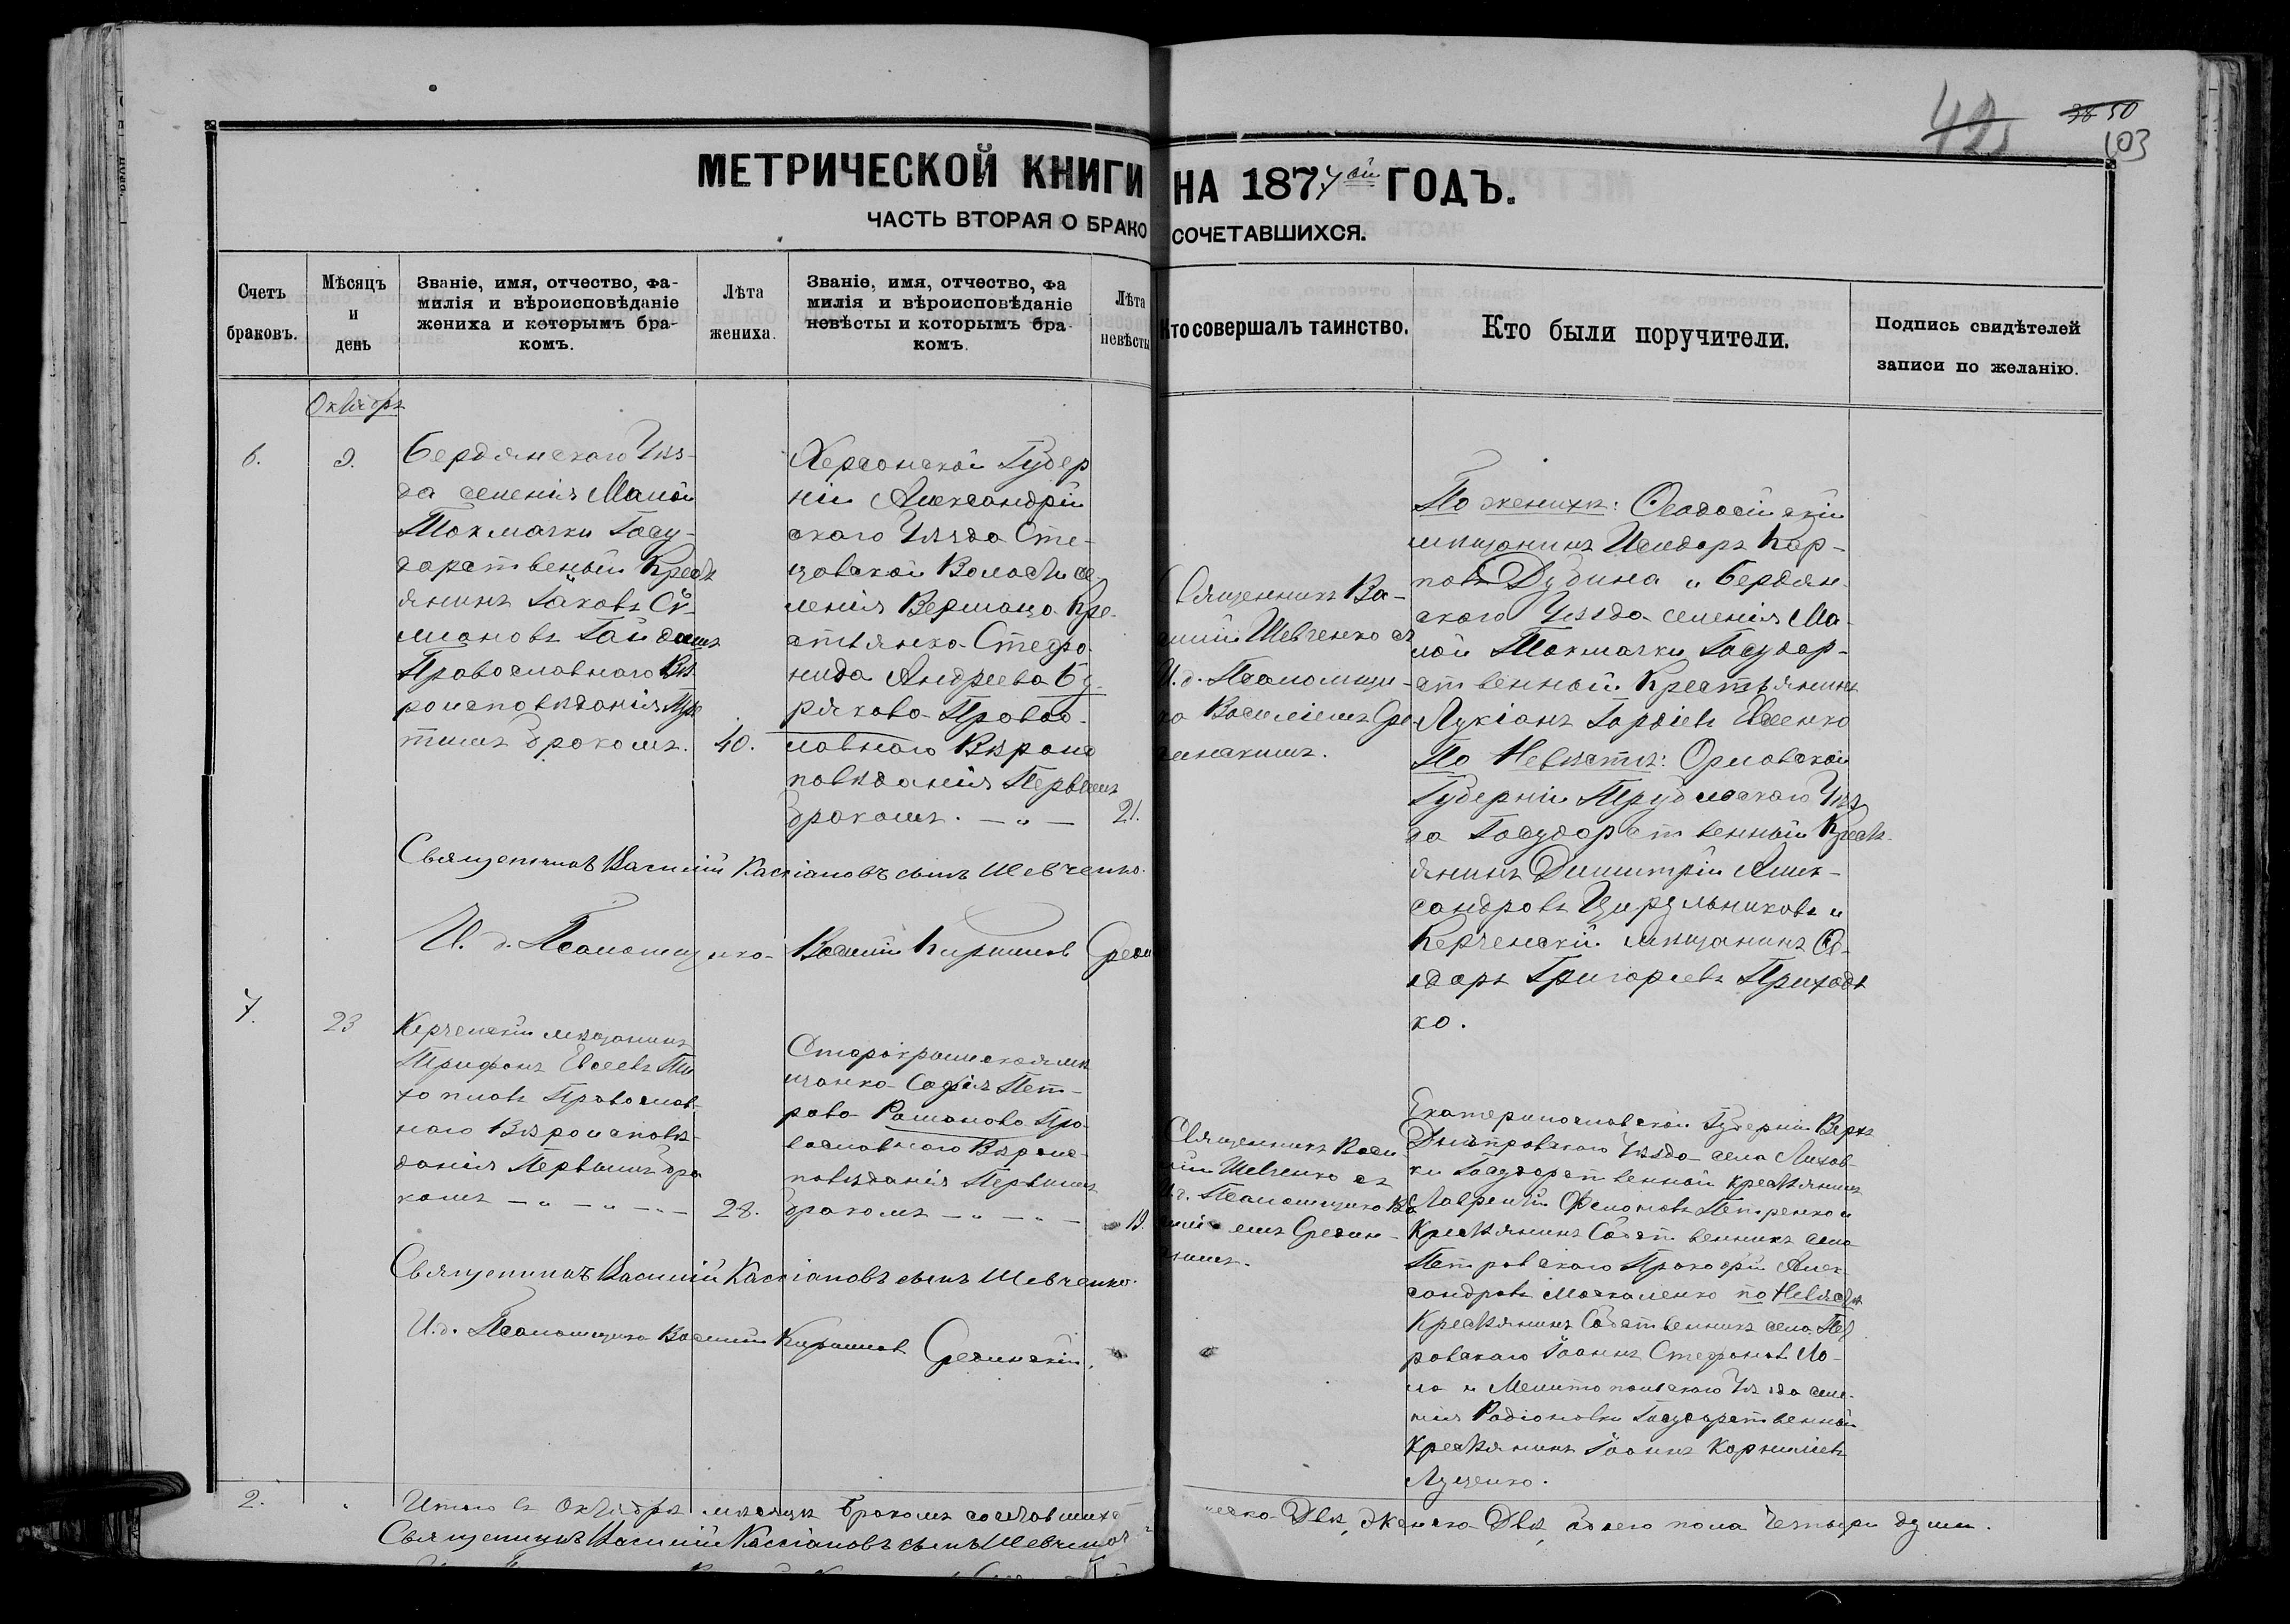 42
38 50
103
МЕТРИЧЕСКОЙ КНИГИ НА 1877ой ГОДЪ.
ЧАСТЬ ВТОРАЯ О БРАКОСОЧЕТАВШИХСЯ.
Счетъ браковъ.
Мѣсяцъ и день
Званіе, имя, отчество, фа-
милія и вѣроисповѣданіе
жениха и которымъ бра-
комъ.
Лѣта жениха.
Званіе, имя, отчество, фа
милія и вѣроисповѣданіе
невѣсты и которымъ бра-
комъ.
Лѣта невѣсты
Кто совершалъ таинство.
Кто были поручители.
Подпись свидѣтелей
записи по желанію.
Октябрь
6.
9.
Бердянскаго Уѣз-
да селенія Малой
Токмачки Госу-
дарственный Кресть
янинъ Іаковъ
Гайдашъ
Православнаго Вѣ
роисповѣданія
тимъ бракомъ.
40.
Херсонской Губер
ніи Александрій
скаго Уѣзда Сте-
цовской Волости се
ленія Вершаца Кре-
стьянка Стефа
нида Андреева Бу
рякова Правос-
лавнаго Вѣроис
повѣданія Первымъ
бракомъ. — „ —
21.
Священникъ Ва-
силій Шевченко съ
И. д. Псаломщи-
ка Василіемъ Сре-
синскимъ.
По женихѣ: Ѳеодосійскій
мѣщанинъ Исидоръ Кар-
повъ Дубина и Бердян-
скаго Уѣзда селенія Ма-
лой Токмачки Государ-
ственный Крестьянинъ
Лукіанъ Гордіевъ Евсенко
По Невѣстѣ: Орловской
Губерніи Трубчевскаго Уѣз
да Государственный Кресть-
янинъ Димитрій Алек-
сандровъ Цирульниковъ и
Керченскій мѣщанинъ Ѳе-
одоръ Григорьевъ Приходь
ко.
Священникъ Василій Кассіановъ сынъ Шевченко.
И. д. Псаломщика Василій Кирилловъ
7.
23
Керченскій мѣщанинъ
Трифонъ Евсеевъ Ти
хоновъ Православ-
наго Вѣроисповѣ-
данія Первымъ бра
комъ — „ — „ — „ —
28.
Старокрымская мѣ
щанка Софія Пет-
рова Романова Пра-
вославнаго Вѣроис-
повѣданія Первымъ
бракомъ — „ — „ —
19.
Священникъ Васи-
лій Шевченко съ
И. д. Псаломщика Ва
силіемъ Сресин-
скимъ.
Екатеринославской Губерніи Верхне
Днѣпровскаго Уѣзда села Лихов-
ки Государственный крестьянинъ
Лаврентій Петренко и
Крестьянинъ Собственникъ села
Петровскаго Прокофій Алек-
сандровъ Москаленко по Невѣстѣ
Крестьянинъ Собственникъ села Пет
ровскаго Іоаннъ Стефановъ
и Мелитопольскаго Уѣзда селе-
нія Родіоновки Государственный
Крестьянинъ Іоаннъ Корниліевъ
Луценко.
Священникъ Василій Кассіановъ сынъ Шевченко.
И. д. Псаломщика Василій Кирилловъ Сресинскій.
2.
Итого въ Октябрѣ мѣсяцѣ бракомъ сочетавшихся
Два, женска Два, обоего пола Четыре души.
Священникъ Василій Кассіановъ сынъ Шевченко